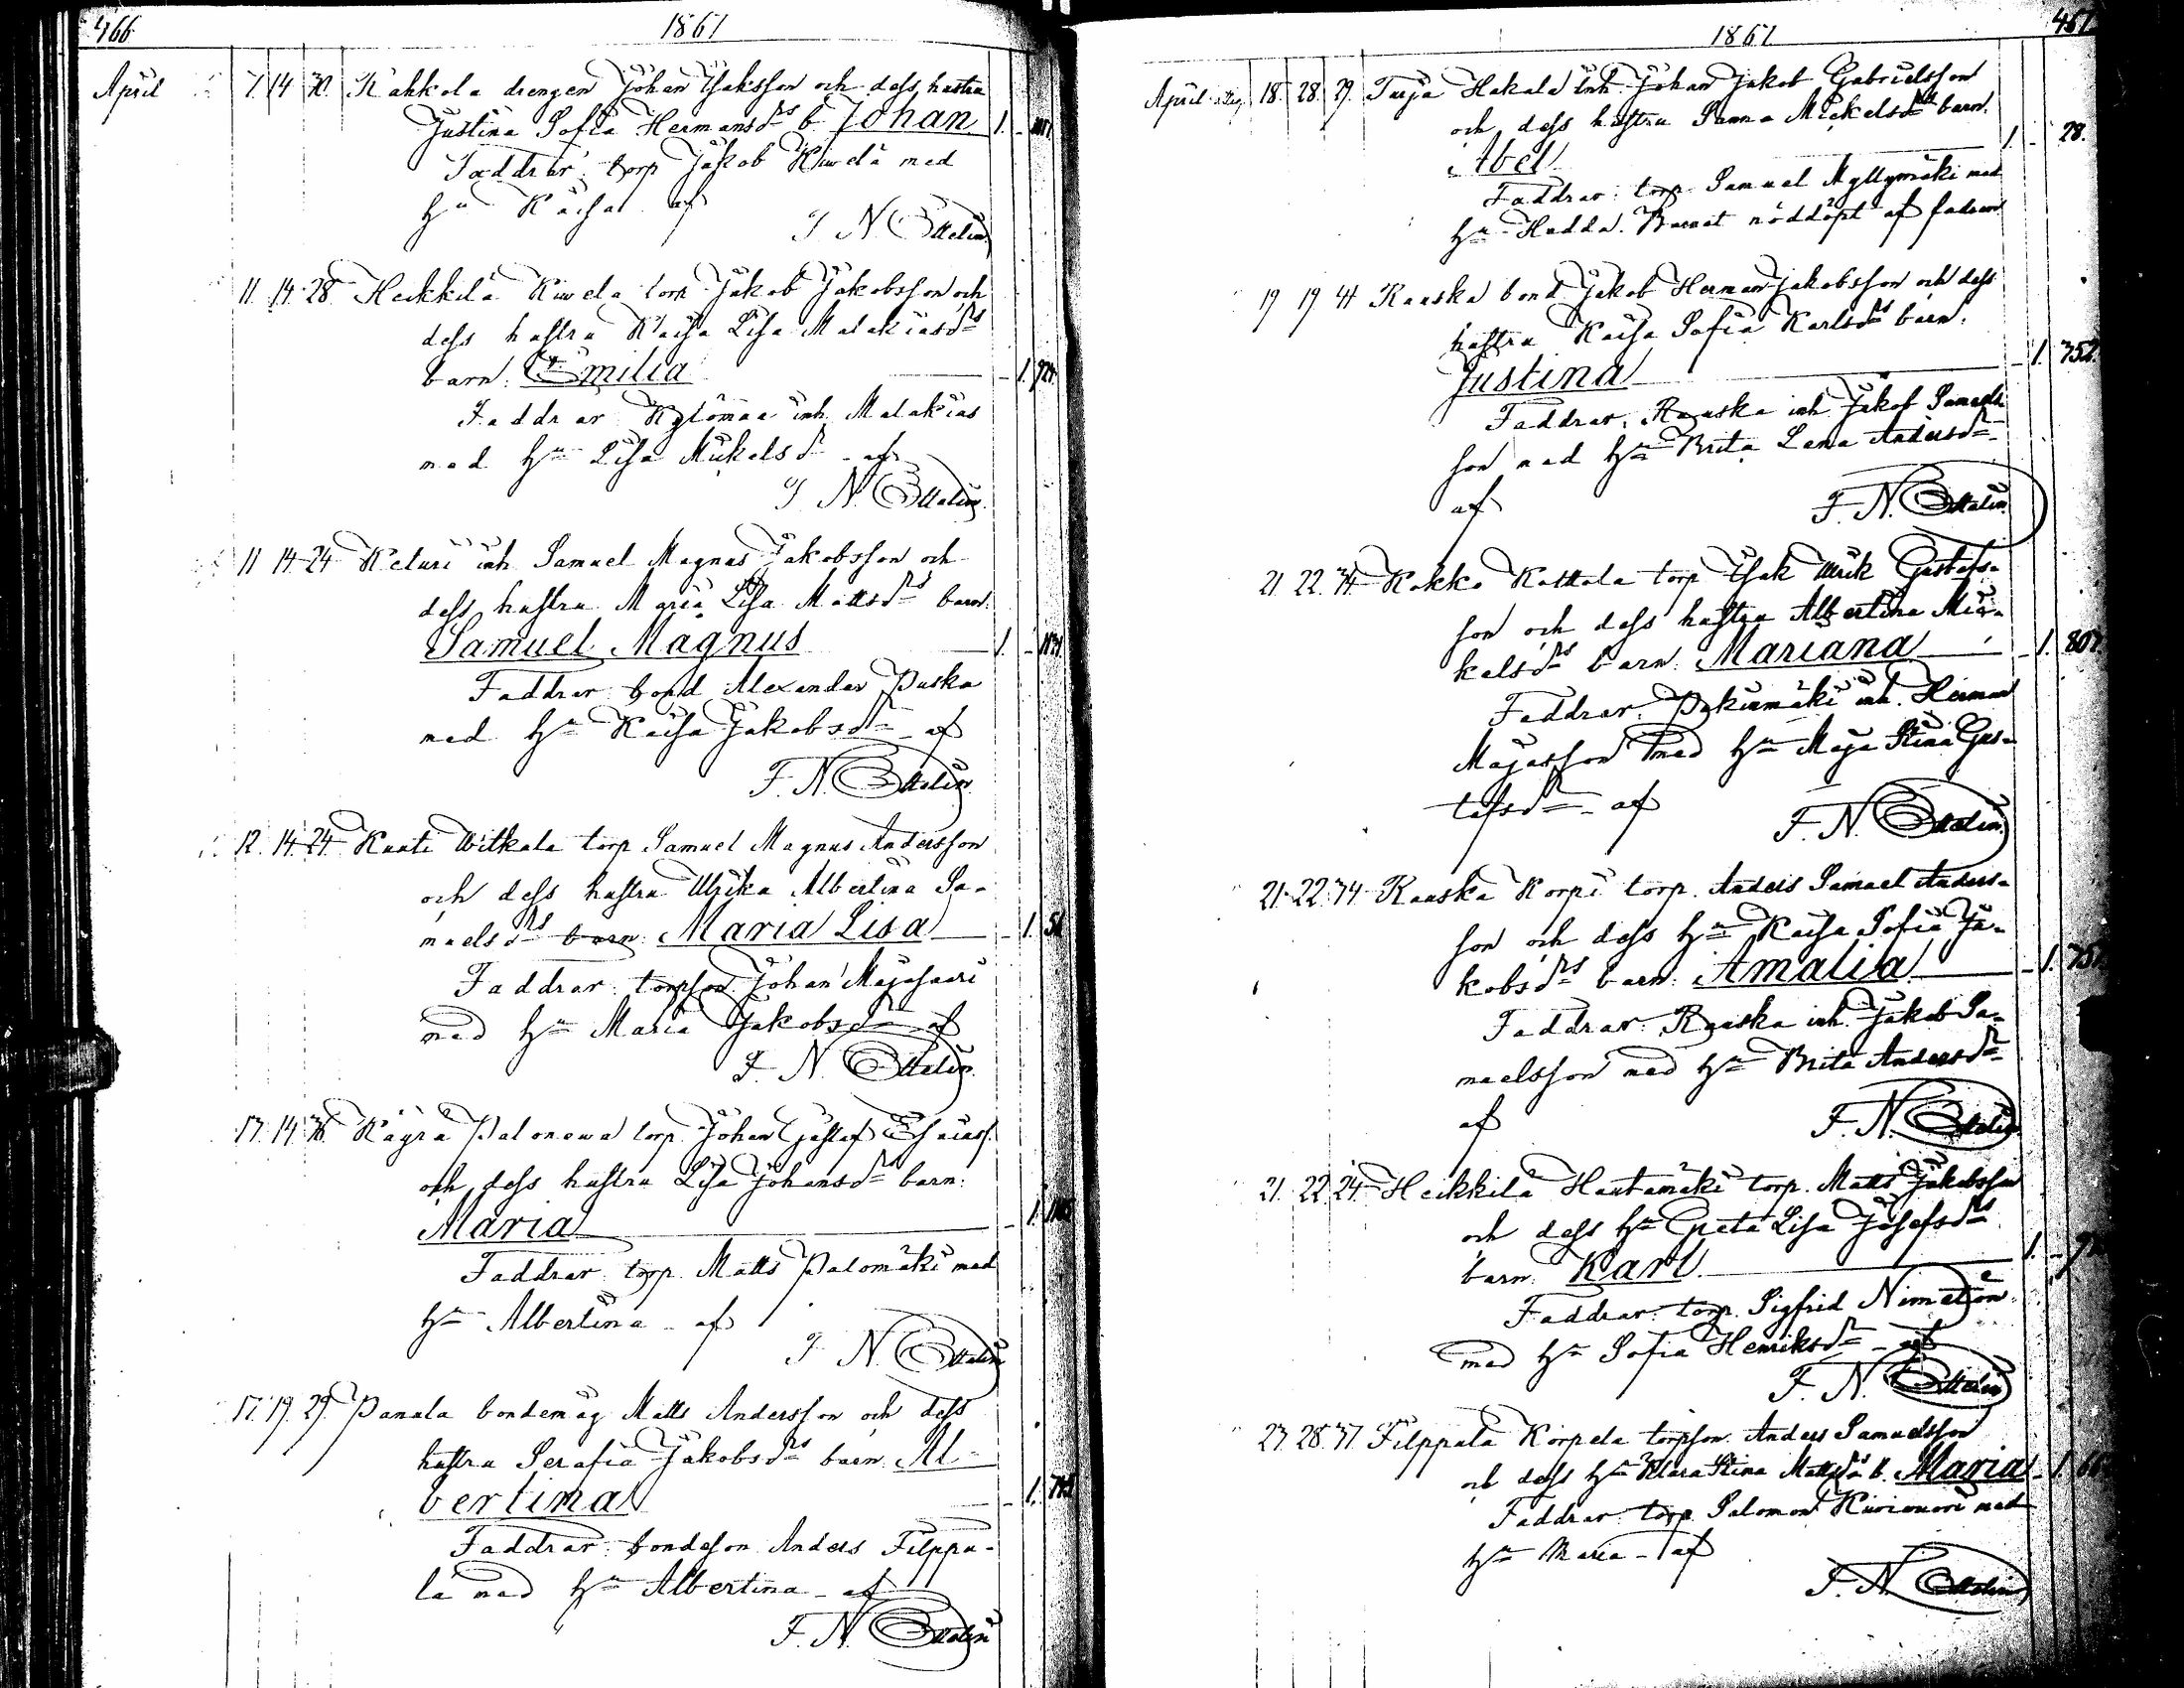 466
1861
April 7. 14 30. Kahkola drengen Johan Isaksson och dess hustru
Justina Sofia Hermansdrs b. Johan 1.
Faddrar: torp Jakob Kiwelä med
hu Kaisa af
F. N. Ottelin
11. 14. 28. Heikkilä Kiwelä torp Jakob Jakobsson och
dess hustru Kaisa Lisa Malakiasdrs
barn: Emilia 1.
Faddrar Kylömaa inh. Malakias
med hu Lisa Mickelsdr af
F. N. Ottelin
11 14 24 Keturi inh Samuel Magnus Jakobsson och
dess hustru Maria Lisa Mattsdrs barn:
Samuel Magnus 1.
Faddrar bond Alexander Puska
med hu Kaisa Jakobsdr af
F. N. Ottelin
12. 14. 24. Knuti Witkala torp Samuel Magnus Andersson
och dess hustru Ulrika Albertina Sa-
muelsdrs barn: Maria Lisa 1.
Faddrar: torpson Johan Majasaari
med hu Maria Jakobsdr af
F. N. Ottelin
14. Palonewa torp. Johan Gustaf
och dess hustru Lisa Johansdr barn:
Maria 1.
Faddrar torp. Matts Palomäki med
hu Albertina af
F. N. Ottelin
17. 19. 29. Panula bondemåg Matts Andersson och dess
hustru Serafia Jakobsdrs barn Al-
bertina 1.
Faddrar: bondeson Anders Filppu-
la med hu Albertina af
F. N. Ottelin
1861
467
April 18. 28. 29. Turja Hakala inh. Johan Jakob Gabrielsson
och dess hustru Sanna Mickelsdrs barn.
Abel 1. 28.
Faddrar: torp. Samuel Myllymäki med
hu Hedda. Barnet nöddöpt af fadren
19 19 41 Rauska bond Jakob Herman Jakobsson och dess
hustru Kaisa Sofia Karlsdrs barn.
Justina 1. 752.
Faddrar. Rauska inh Jakob Samuels-
son med hu Brita Lena Andersdr
af F. N. Ottelin
21. 22. 34. Kokko Kattala torp Isak Erik Gustafs-
son och dess hustru Albertina Mic-
kelsdrs barn: Mariana 1. 807.
Faddrar: inh. Herman
Majasson med hu Maja Stina Gus-
tafsdr af F. N. Ottelin
21. 22. 34. Rauska Korpi torp. Anders Samuel Anders-
son och dess hu Kaisa Sofia Ja-
kobsdrs barn: Amalia 1. 757.
Faddrar: Rauska inh. Jakob Sa-
muelsson med hu Brita Andersdr
af F. N. Ottelin
21. 22. 24. Heikkilä Hautamäki torp. Matts Jakobsson
och dess hu Greta Lisa Josefsdrs
barn: Karl 1.
Faddrar: torp. Sigfrid
med hu Sofia Henriksdr af
F. N. Ottelin
23. 28. 37. Filppula Korpela torpson Anders Samuelsson
och dess hu Klara Stina Mattsdrs b. Maria 1.
Faddrar torp. Salomon med
hu Maria af
F. N. Ottelin